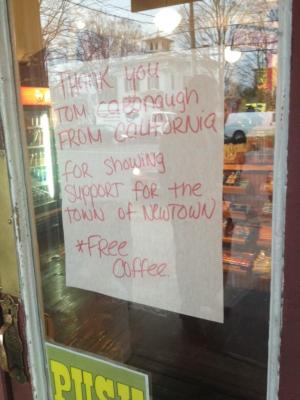 THANK YOU
TOM cavanaugh
FROM CALIFORNIA
for showing
support for the
town of NEWTOWN
*FREE
COFFEE
PUSH